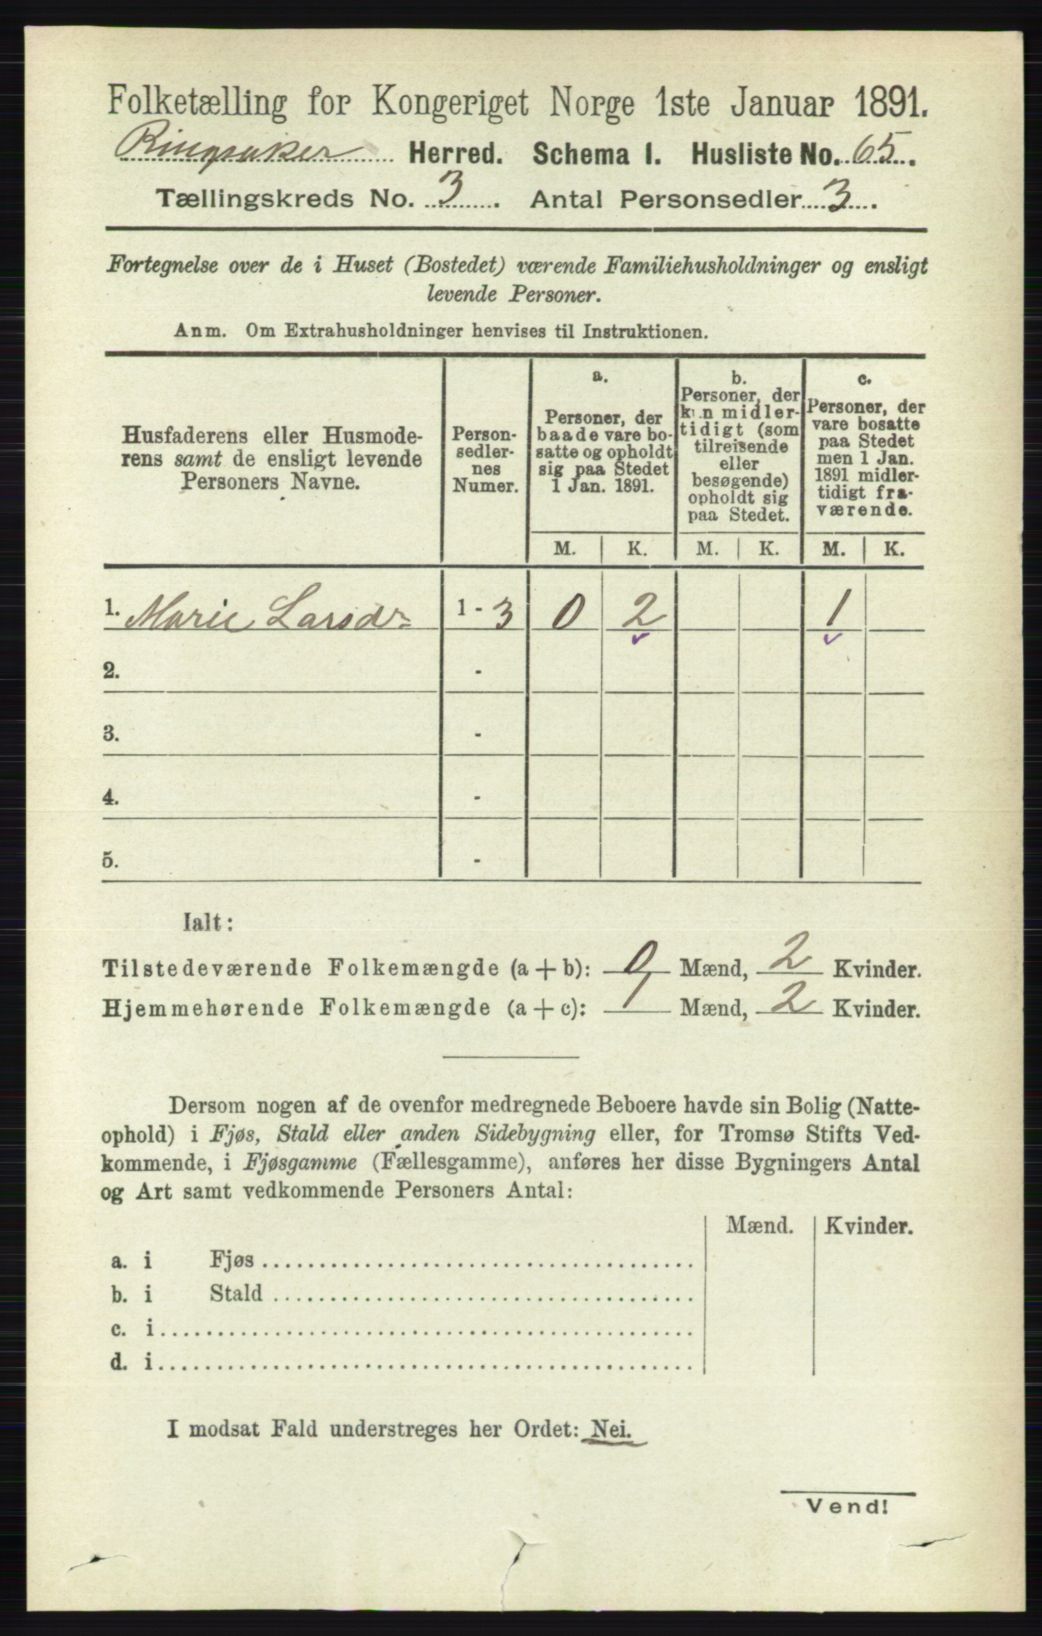 Folketælling for Kongeriget Norge 1ste Januar 1891.
Ringsaker Herred. Schema I. Husliste No. 65.
Tællingskreds No. 3. Antal Personsedler 3.
Fortegnelse over de i Huset (Bostedet) værende Familiehusholdninger og ensligt
levende Personer.
Anm. Om Extrahusholdninger henvises til Instruktionen.
Husfaderens eller Husmode-
rens samt de ensligt levende
Personers Navne.
Person-
sedler-
nes
Numer.
a.
Personer, der
baade vare bo-
satte og opholdt
sig paa Stedet
1 Jan. 1891.
b.
Personer, der
kun midler-
tidigt (som
tilreisende
eller
besøgende)
opholdt sig
paa Stedet.
c.
Personer, der
vare bosatte
paa Stedet
men 1 Jan.
1891 midler-
tidigt fra-
værende.
M. K. M. K. M. K.
1. Marie Larsdr 1 - 3 0 2 1
2. -
3. -
4. -
5. -
Ialt:
Tilstedeværende Folkemængde (a + b): 0 Mænd, 2 Kvinder.
Hjemmehørende Folkemængde (a + c): 1 Mænd, 2 Kvinder.
Dersom nogen af de ovenfor medregnede Beboere havde sin Bolig (Natte-
ophold) i Fjøs, Stald eller anden Sidebygning eller, for Tromsø Stifts Ved-
kommende, i Fjøsgamme (Fællesgamme), anføres her disse Bygningers Antal
og Art samt vedkommende Personers Antal:
Mænd. Kvinder.
a. i Fjøs
b. i Stald
c. i
d. i
I modsat Fald understreges her Ordet: Nei.
Vend!